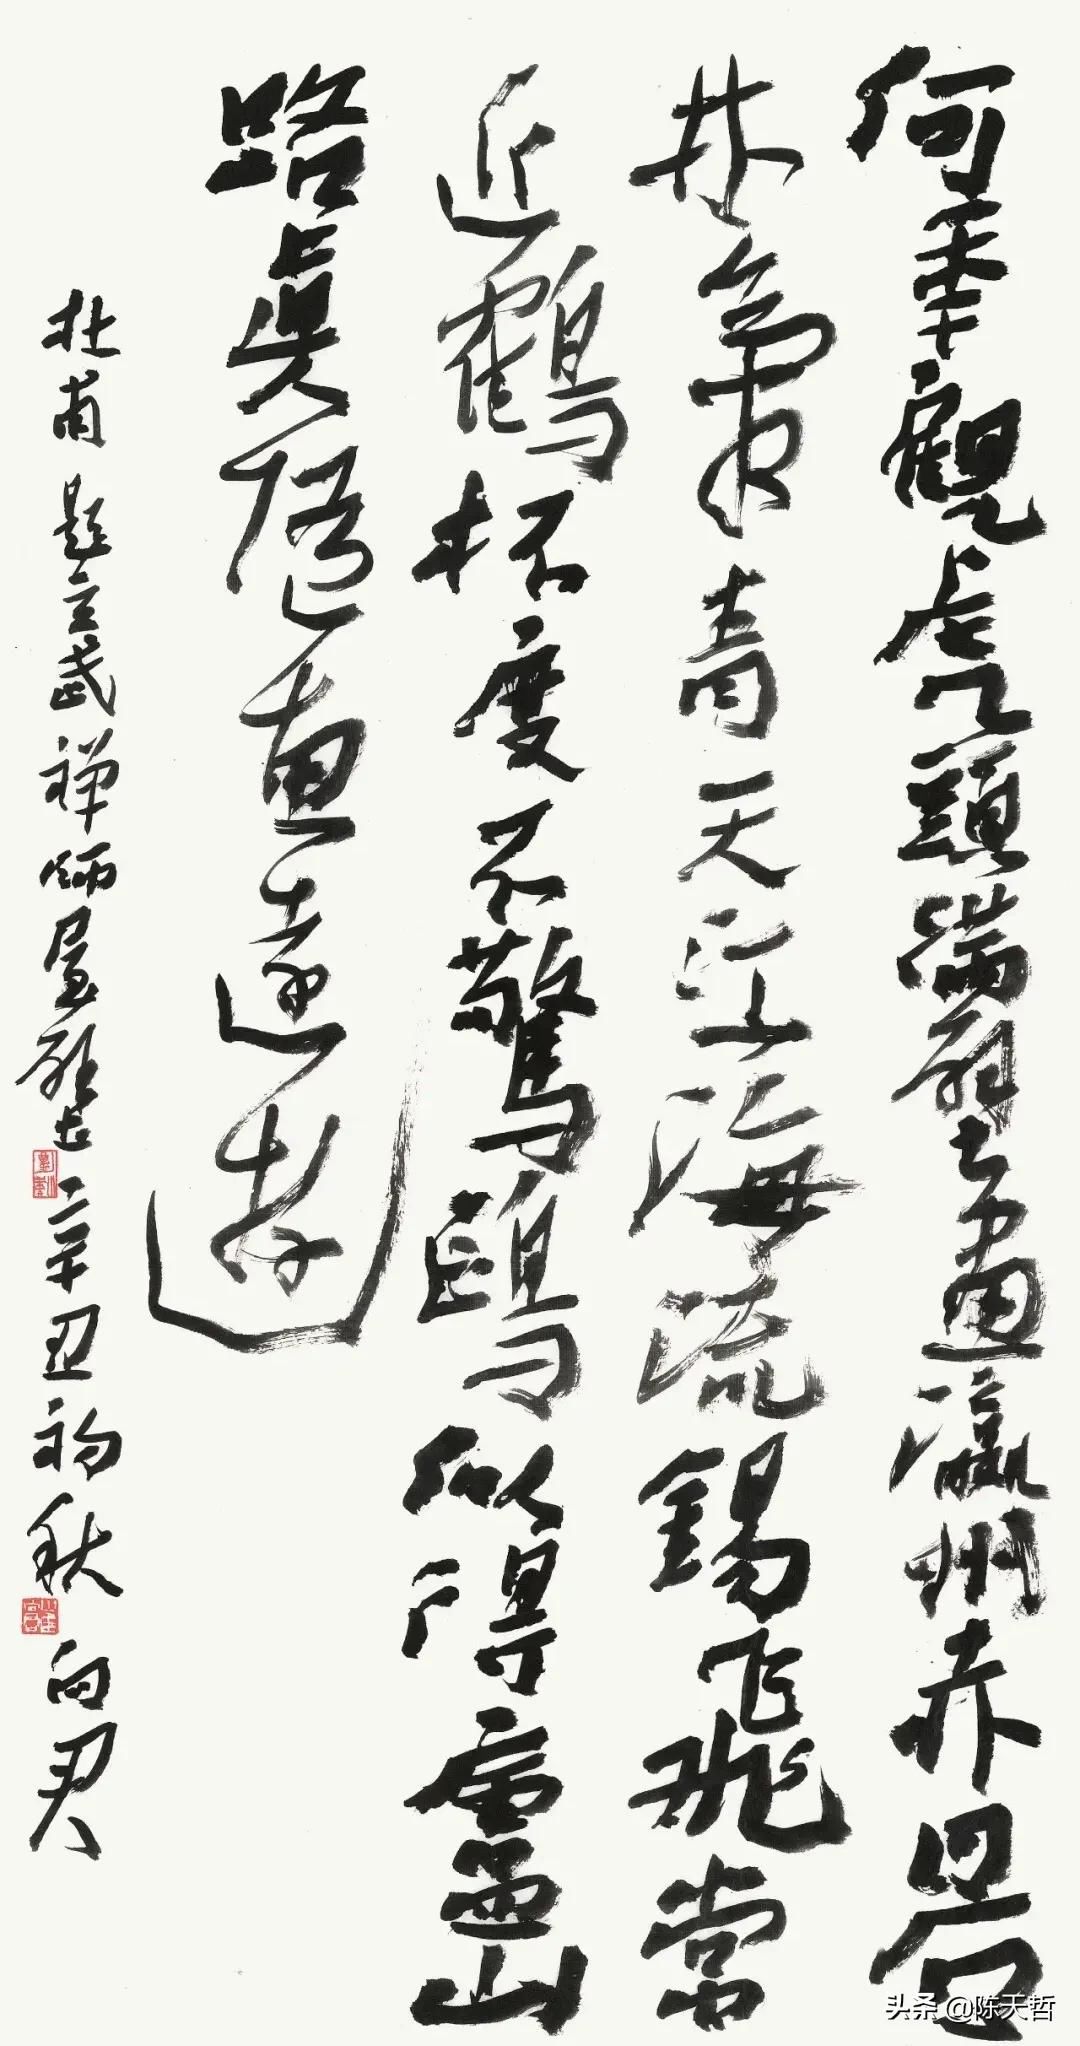 何年觀虎頭滿壁畫瀛州赤日石
林氣青天江海流錫飛常
近鶴杯度不驚鷗似得廬山
路真隨惠遠遊
杜甫題玄武禪師屋壁辛丑初秋向君
头条 @陈天哲